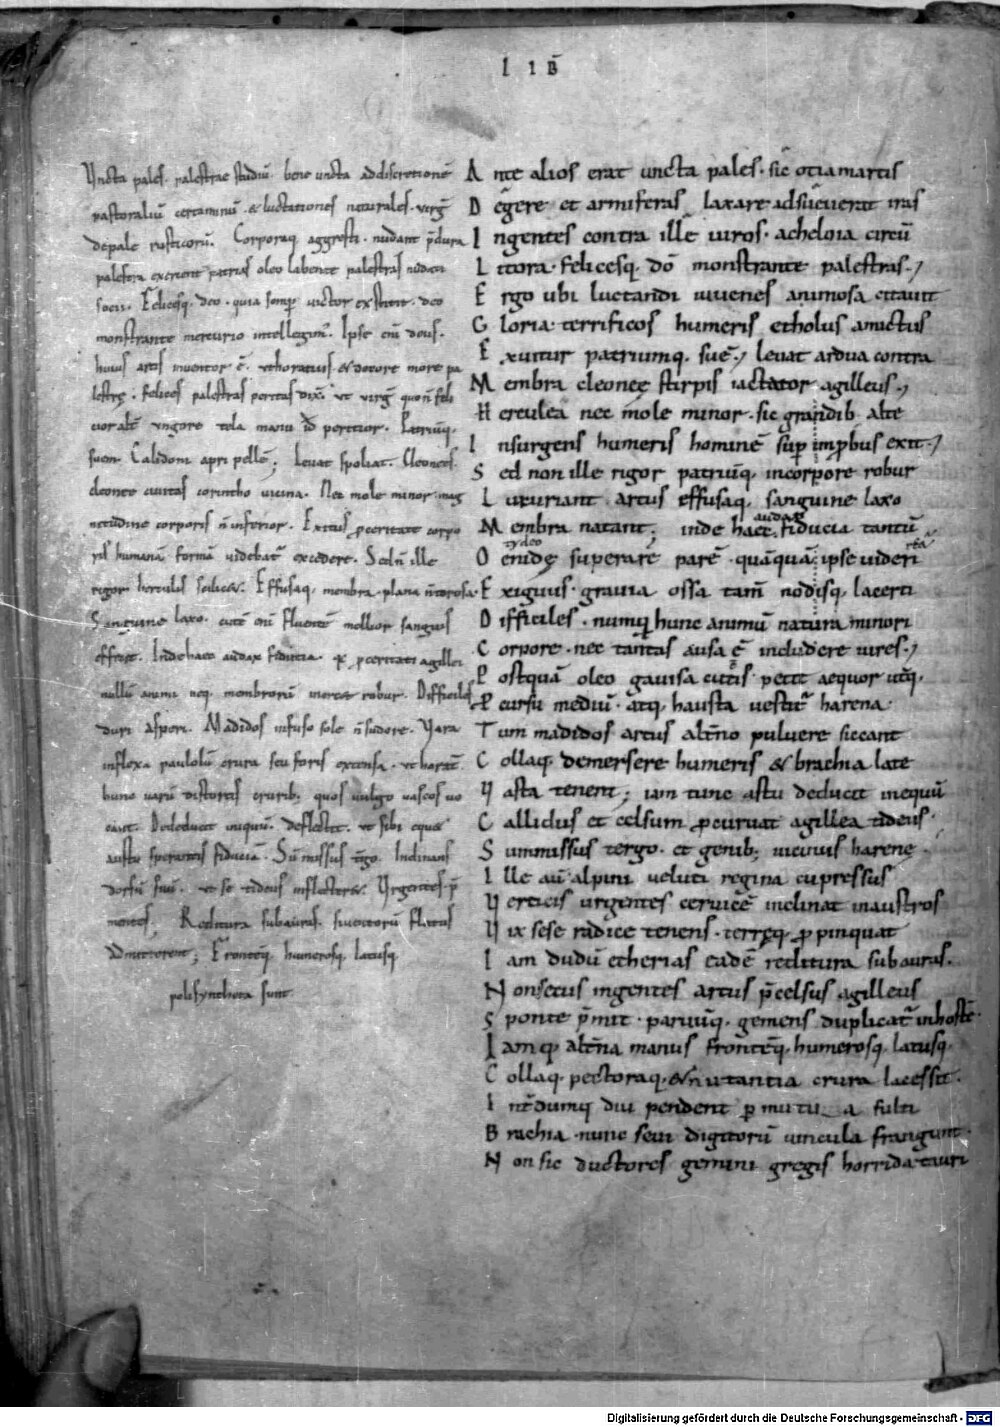 LIB̄
Vncta pales. palestrae studiū. bene uncta addiscretionē
pastoraliū certaminū. & luctationes naturales. uirg̅
depale rusticorū. Corporaq; aggresti. nudant p̄dura
palestra exercent patrias oleo labente palestras nudati
socii. Felicesq. deo. quia semp uictor exstitit. deo
monstrante mercurio intellegim'. Ipse enī deus.
huius artis inuentor ē. ut horatius. & decore more pa
lestrę. Felices palestras peritas dix̄. ut uirg̅
ungere tela manu
suem. Calidonii apri pellē; Leuat spoliat. Cleoneę.
cleone ciuitas corintho uicina. Nec mole minor. mag
nitudine corporis n̄ inferior. Exitus proceritate corpo
ris humanā formā uidebat̄ excedere. Sed n̄ ille
rigor herculis scilic&. Effusaq. membra. plana n̄ torosa.
Sanguine laxo. enī fluente mollior sanguis
effic̄. Inde haec audax fiducia. proceritati agillei
nullū animi neq. membrorū inerat robur. Difficiles
duri asperi. Madidos infuso sole n̄ sudore. Vara
inflexa paulolū crura seu foris extensa. ut horat̄.
hunc uarū distortis crurib; quos uulgo uascos uo
cant. Deducit iniquū. deflectit. ut sibi equa
astu sperantis fiduciā. Sūmissus tergo. Inclinans
dorsū suū. ut se tideus inflecter&. Vrgentes. p̄
mentes. Reditura subauras. si uentorū flatus
admitterent; Frontēq. humerosq. latusq.
polisyntheta sunt.
A nte alios erat uncta pales. sic otia martis
D egere et armiferas laxare adsueuerat iras
I ngentes contra ille uiros. acheloia circū
L ittora. felicesq. dō monstrante palestras.
E rgo ubi luctandi iuuenes animosa citauit
G loria. terrificos humeris etholus amictus
E xuitur patriumq. suē. leuat ardua contra
M embra cleoneę stirpis iactator agilleus.
H erculea nec mole minor. sic grandib. alte
I nsurgens humeris hominē sup imp̄bus exit.
S ed non ille rigor patriūq. incorpore robur
L uxuriant artus effusaq. sanguine laxo
M embra natant; inde haec audax fiducia tantū
O enidę tydeo superare parē. quāquā ipse uideri
E xiguus. grauia ossa tam̄ nodisq. lacerti
D ifficiles. numq̄ hunc animū natura minori
C orpore. nec tantas ausa ē includere uires.
P ostquā oleo gauisa cutis petit aequor utq̄.
P cursu mediū. atq. hausta uestit̄ harena.
T um madidos artus alt̄no puluere siccant
C ollaq. demersere humeris & brachia late
V asta tenent; iam tunc astu deducit inequū
C allidus et celsum p̄curuat agillea tideus.
S ummissus tergo. et genib; uicinus harenę.
I lle aū alpini ueluti regina cupressus
V erticis urgentes ceruicē inclinat inaustros
V ix sese radice tenens. terręq. p̄pinquat
I am dudū etherias eadē reditura subauras.
N onsecus ingentes artus p̄celsus agilleus
S ponte p̄mit. paruūq. gemens duplicat̄ inhostē.
I amq. alt̄na manus frontēq. humerosq. latusq.
C ollaq. pectoraq. & uitantia crura lacessit.
I nt̄dumq; diu pendent p mutua fulti
B rachia. nunc seui digitorū uincula frangunt.
N on sic ductores gemini gregis horrida tauri
Digitalisierung gefördert durch die Deutsche Forschungsgemeinschaft - DFG